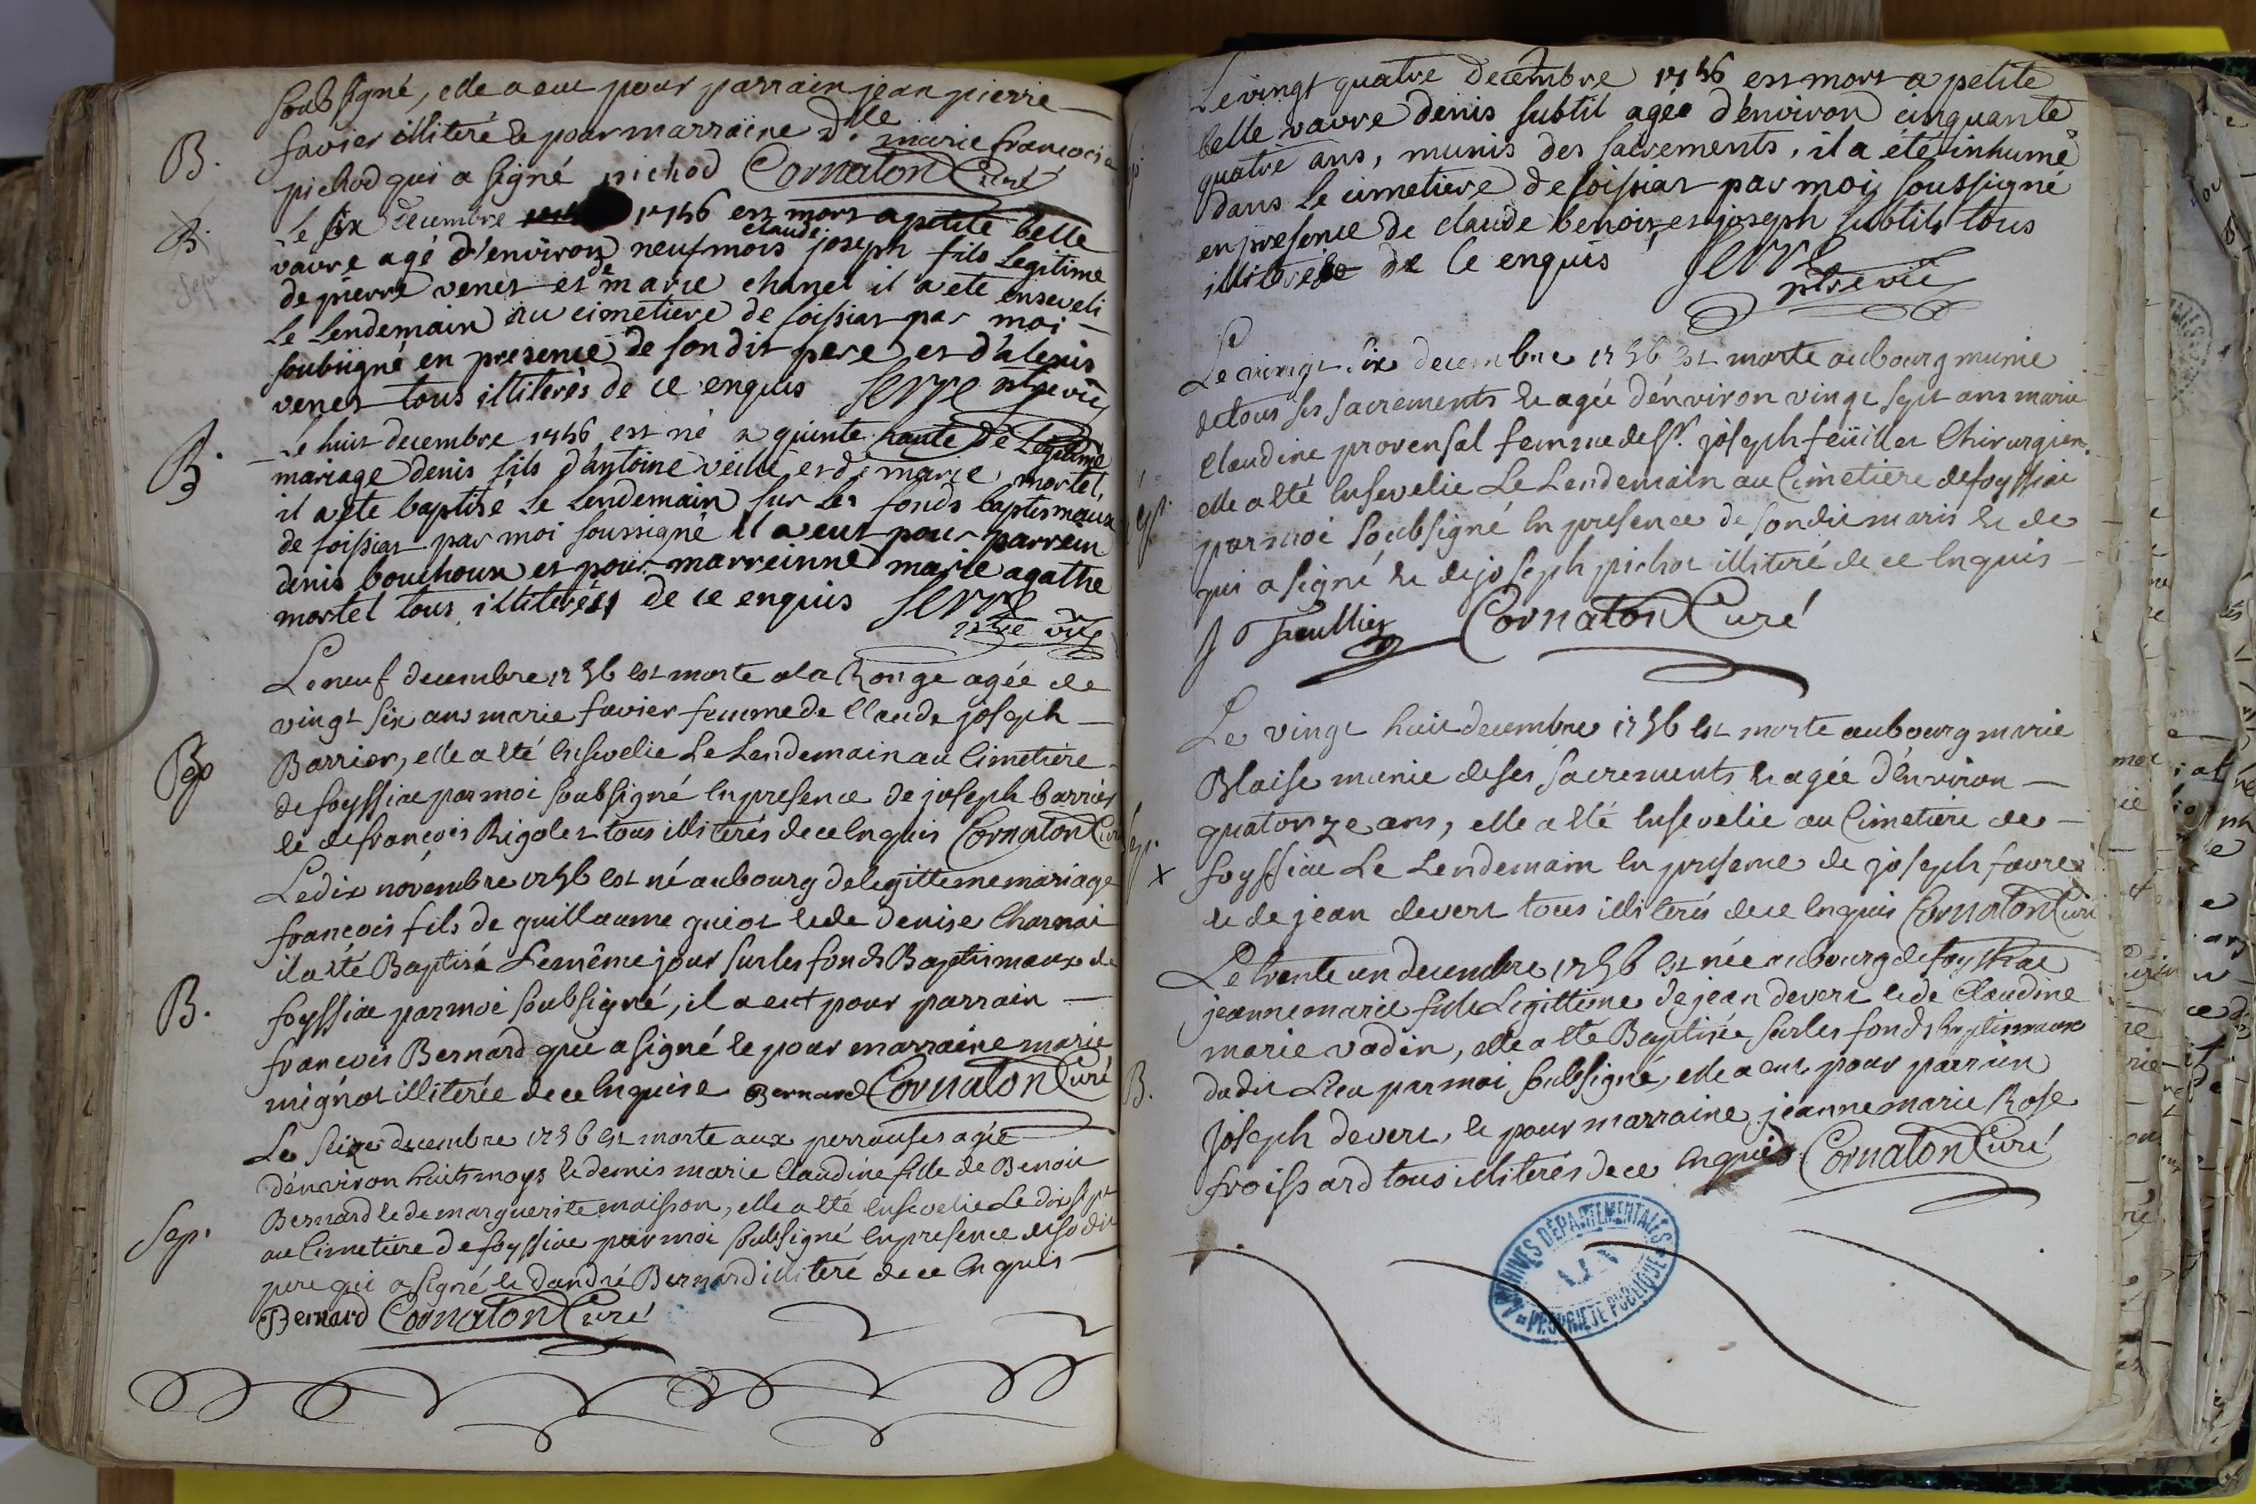 soubsigné, elle a eut pour parrain jean pierre
B. favier illiteré & pour marraine Dlle marie francoise
pichod qui a signé pichod Cornaton Curé
B. Le six decembre 1756 est mort a petite belle
vavre agé d'environ neuf mois claude joseph fils Legitime
de pierre venet et de marie chanel il a ete enseveli
Le Lendemain au cimetiere de foissiat par moi
soubsigné en presence de son dit pere et d'alexis
venet tous illiterés de ce enquis Serre ptre vic
B. Le huit decembre 1756 est né a quinte haute de Legitime
mariage denis fils d'antoine veille et de marie mortel,
il a ete baptisé Le Lendemain sur Les fonds baptismaux
de foissiat par moi soussigné il a eut pour parrein
denis bouchoux et pour marreinne marie agathe
mortel tous illiterés de ce enquis Serre
ptre vic
Le neuf decembre 1756 est morte a la Ronge agée de
vingt six ans marie favier femme de Claude joseph
Barrier, elle a été Ensevelie Le Lendemain au Cimetière
de foyssiac par moi soubsigné En presence de joseph barrier
& de françois Rigolet tous illiterés de ce Enquis Cornaton Curé
Le dix novembre 1756 est né au bourg de legittime mariage
francois fils de guillaume guiot & de denise Charnai
il a été Baptisé Le même jour sur les fonds Baptismaux de
B. foyssiac par moi soubsigné, il a eut pour parrain
francois Bernard qui a signé & pour marraine marie
mignot illiterée de ce Enquise Bernard Cornaton Curé
Le seize decembre 1756 est morte aux perrouses agée
d'environ huit moys & demis marie Claudine fille de Benoit
Bernard & de marguerite maisson, elle a été Ensevelie Le dix sept
Sep. au Cimetiere de foyssiac par moi soubsigné En presence de so dit
pere qui a signé & d'andré Bernard illiteré de ce Enquis
Bernard Cornaton Curé
Le vingt quatre decembre 1756 est mort a petite
belle vavre denis subtil agée d'environ cinquante
quatre ans, munis des sacrements, il a été inhumé
dans Le cimetiere de foissiat par moi soussigné
en presence de claude benoit et joseph subtil tous
illiterés de Ce enquis Serre
ptre vic
Le vingt six decembre 1756 est morte au bourg munie
de tous ses sacrements & agée d'environ vingt sept ans marie
Claudine provensal femme de Sr. joseph feüillet Chirurgien,
elle a été Ensevelie Le Lendemain au Cimetiere de foyssiac
par moi soubsigné En presence de son dit maris & de
qui a signé & de joseph pichot illiteré de ce Enquis
Cornaton Curé
Le vingt huit decembre 1756 est morte au bourg marie
Blaise munie de ses sacrements & agée d'environ
quatorze ans, elle a été Ensevelie au Cimetiere de
foyssiac Le Lendemain En presence de joseph favre
& de jean devert tous illiterés de ce Enquis Cornaton Curé
Le trente un decembre 1756 est née au bourg de foyssiac
jeanne marie fille Legittime de jean devert & de Claudine
marie vadin, elle a été Baptisée sur les fonds baptismaux
B. du dit Lieu par moi soubsigné, elle a eut pour parrein
joseph devert, & pour marraine jeanne marie Rose
froissard tous illiterés de ce Enquis Cornaton Curé
ARCHIVES DÉPARTEMENTALES
AIN
PROPRIÉTÉ PUBLIQUE